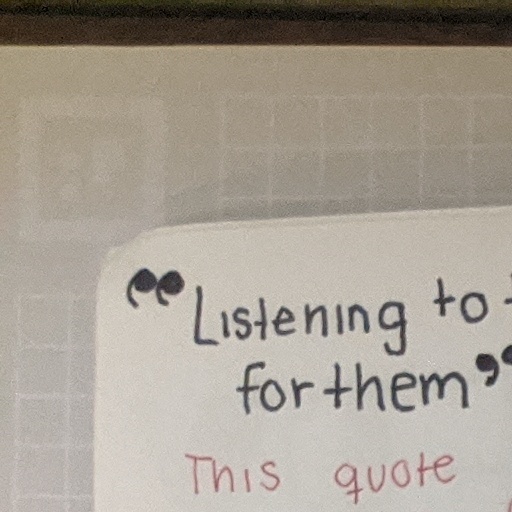 “Listening to
for them”
This quote